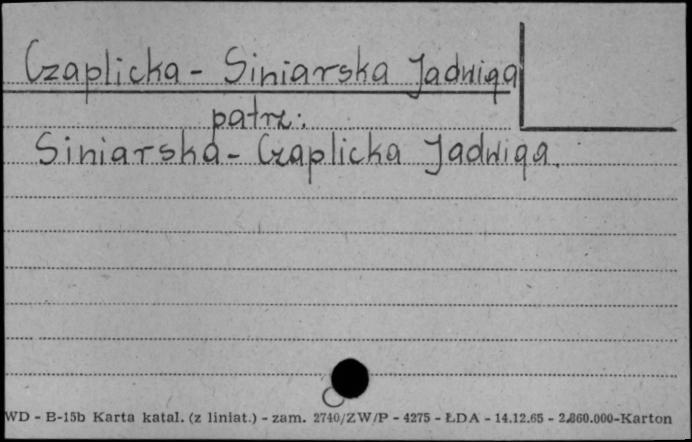 Czaplicka - Siniarska Jadwiga
patrz:
Siniarska - Czaplicka Jadwiga.
WD - B-15b Karta katal. (z liniat.) - zam. 2740/ZW/P - 4275 - ŁDA - 14.12.65 - 2.860.000-Karton